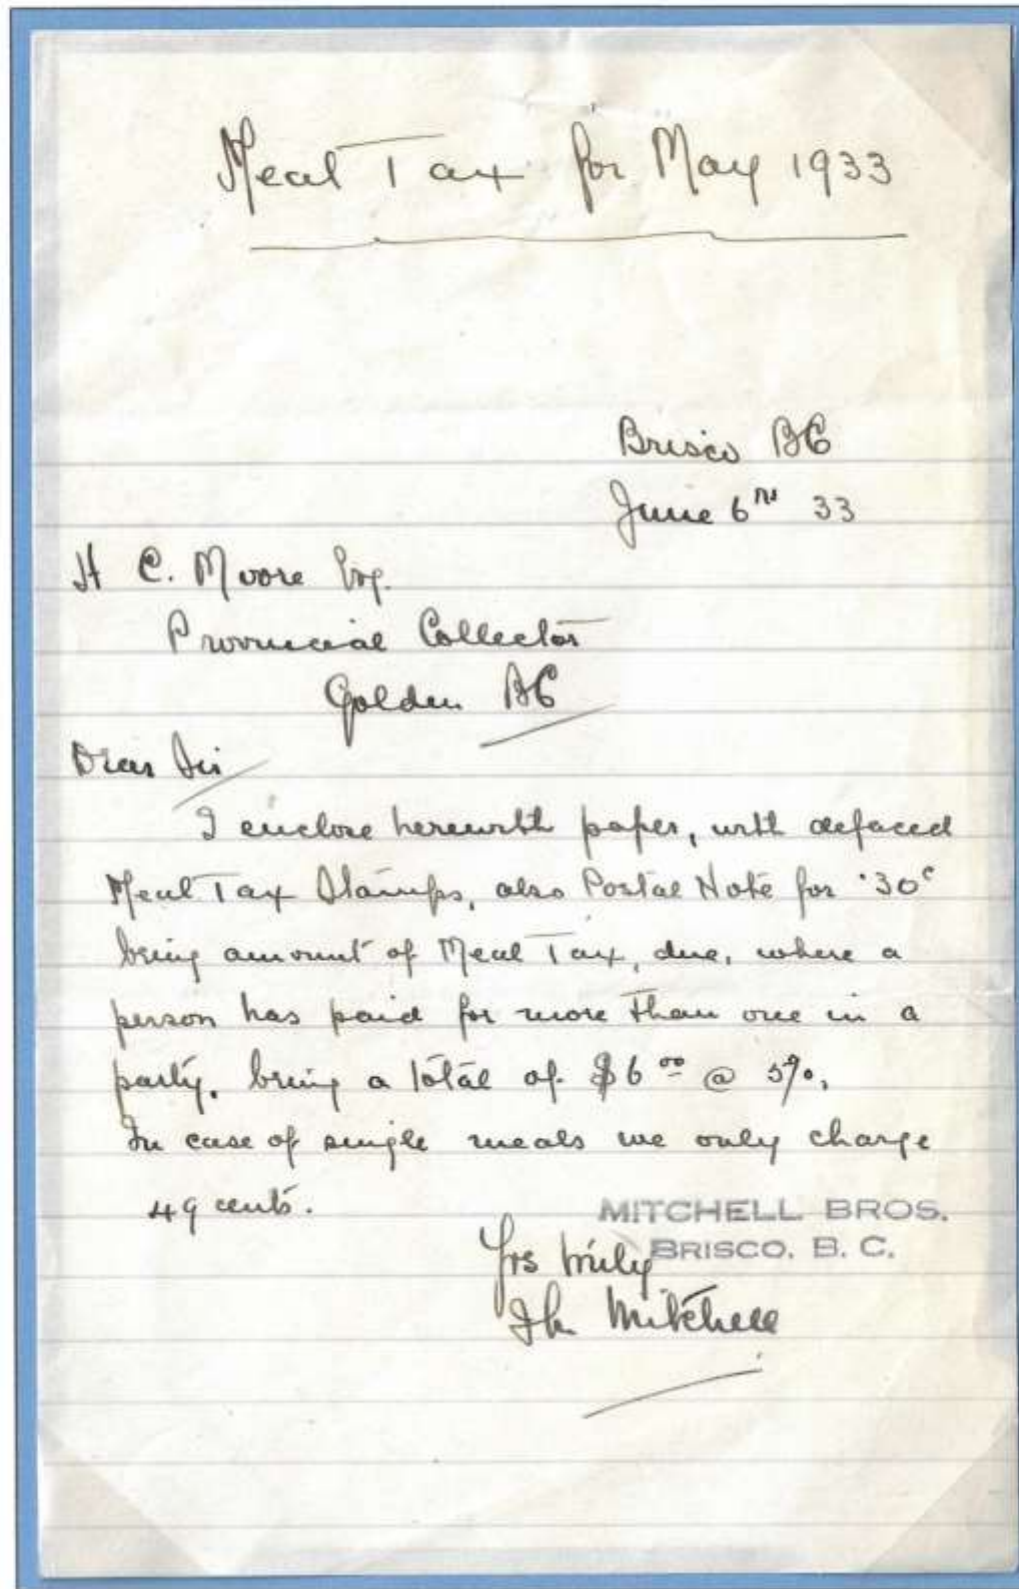 Meal Tax for May 1933
Brisco BC
June 6th 33
H C. Moore Esq.
Provincial Collector
Golden BC
Dear Sir
I enclose herewith paper, with defaced
Meal Tax Stamps, also Postal Note for .30c
being amount of Meal Tax, due, where a
person has paid for more than one in a
party. being a total of $6 00 @ 5%.
In case of single meals we only charge
49 cents.
MITCHELL BROS.
BRISCO. B. C.
Yrs truly
Mitchell